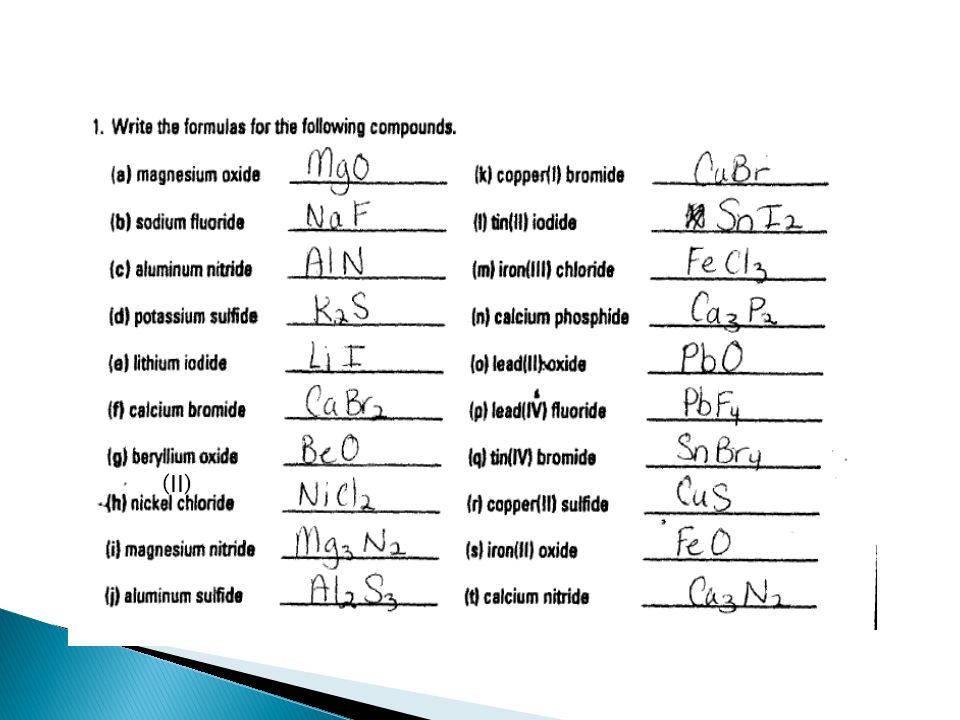 1. Write the formulas for the following compounds.
(a) magnesium oxide MgO (k) copper(I) bromide CuBr
(b) sodium fluoride NaF (l) tin(II) iodide SnI2
(c) aluminum nitride AlN (m) iron(III) chloride FeCl3
(d) potassium sulfide K2S (n) calcium phosphide Ca3P2
(e) lithium iodide LiI (o) lead(II) oxide PbO
(f) calcium bromide CaBr2 (p) lead(IV) fluoride PbF4
(g) beryllium oxide BeO (q) tin(IV) bromide SnBr4
(II)
(h) nickel chloride NiCl2 (r) copper(II) sulfide CuS
(i) magnesium nitride Mg3N2 (s) iron(II) oxide FeO
(j) aluminum sulfide Al2S3 (t) calcium nitride Ca3N2